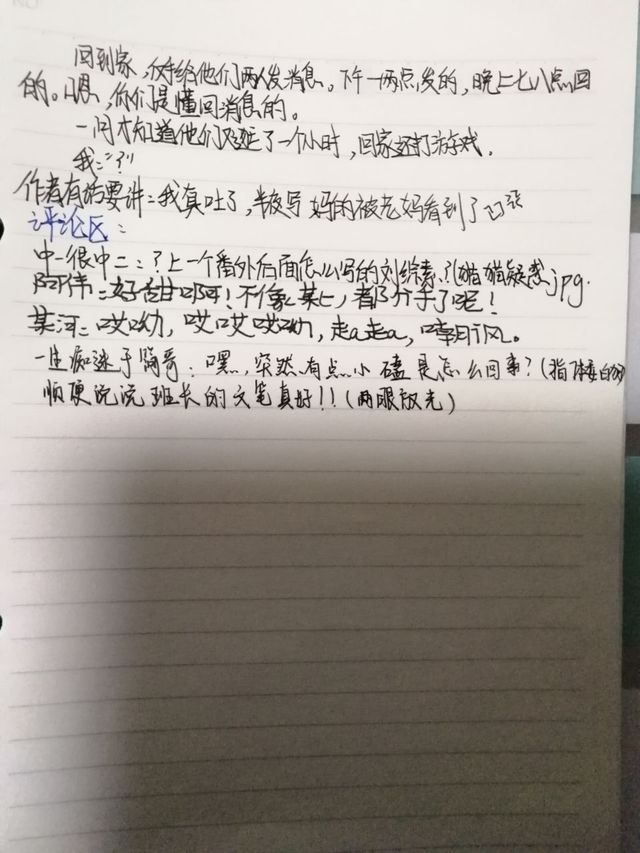 回到家,我给他们两人发消息。下午一两点发的,晚上七八点回
的。嗯,你们是懂回消息的。
一问才知道他们又延了一个小时,回家还打游戏.
我:"?"
作者有话要讲:我真吐了,半夜写 妈的被老妈看到了
评论区:
中一很中二:?上一个番外后面怎么写的刘综素.猫猫疑惑jpg.
阿伟:好甜啊!不像某匕,都分手了呢!
某河:哎呦,哎哎哎呦,走a走a,
一生痴迷于 哥:嘿,突然有点小磕是怎么回事?(指体委
顺便说说班长的文笔真好!!(两眼放光)